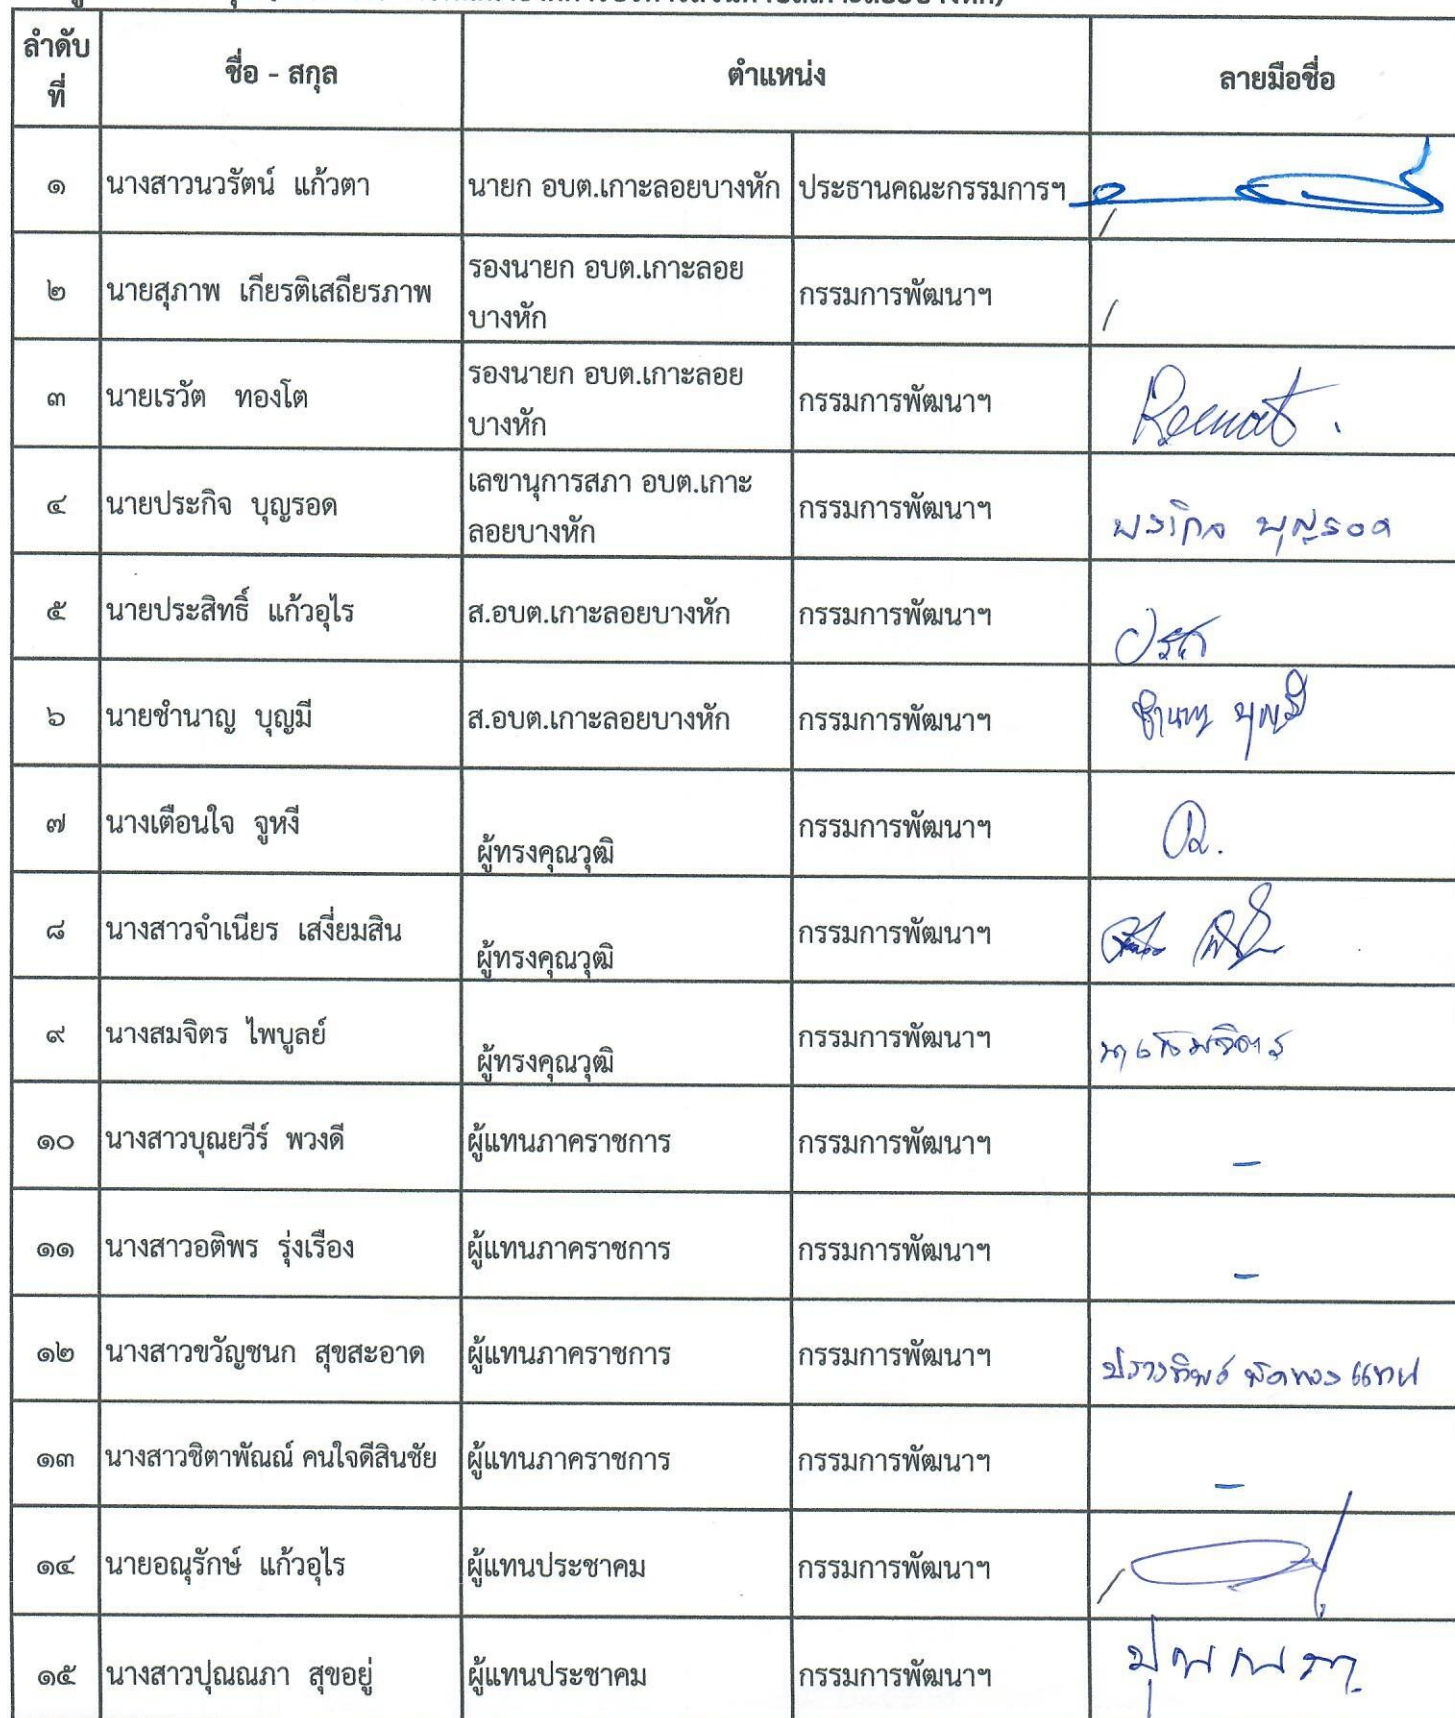 ลำดับ
ที่
ชื่อ - สกุล
ตำแหน่ง
ลายมือชื่อ
๑ นางสาวนวรัตน์ แก้วตา นายก อบต.เกาะลอยบางหัก ประธานคณะกรรมการฯ
๒ นายสุภาพ เกียรติเสถียรภาพ รองนายก อบต.เกาะลอย
บางหัก
กรรมการพัฒนาฯ
๓ นายเรวัต ทองโต รองนายก อบต.เกาะลอย
บางหัก
กรรมการพัฒนาฯ
๔ นายประกิจ บุญรอด เลขานุการสภา อบต.เกาะ
ลอยบางหัก
กรรมการพัฒนาฯ ประกิจ บุญรอด
๕ นายประสิทธิ์ แก้วอุไร ส.อบต.เกาะลอยบางหัก กรรมการพัฒนาฯ
๖ นายชำนาญ บุญมี ส.อบต.เกาะลอยบางหัก กรรมการพัฒนาฯ ชำนาญ บุญมี
๗ นางเตือนใจ จูหงี ผู้ทรงคุณวุฒิ กรรมการพัฒนาฯ
๘ นางสาวจำเนียร เสงี่ยมสิน ผู้ทรงคุณวุฒิ กรรมการพัฒนาฯ
๙ นางสมจิตร ไพบูลย์ ผู้ทรงคุณวุฒิ กรรมการพัฒนาฯ
๑๐ นางสาวบุณยวีร์ พวงดี ผู้แทนภาคราชการ กรรมการพัฒนาฯ -
๑๑ นางสาวอติพร รุ่งเรือง ผู้แทนภาคราชการ กรรมการพัฒนาฯ -
๑๒ นางสาวขวัญชนก สุขสะอาด ผู้แทนภาคราชการ กรรมการพัฒนาฯ แทน
๑๓ นางสาวชิตาพัณณ์ คนใจดีสินชัย ผู้แทนภาคราชการ กรรมการพัฒนาฯ -
๑๔ นายอณุรักษ์ แก้วอุไร ผู้แทนประชาคม กรรมการพัฒนาฯ
๑๕ นางสาวปุณณภา สุขอยู่ ผู้แทนประชาคม กรรมการพัฒนาฯ ปุณณภา